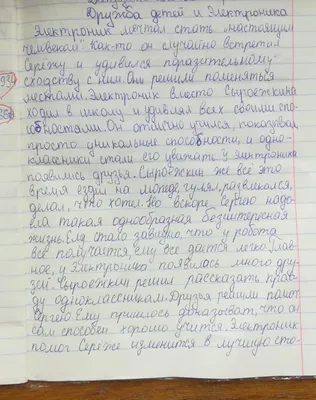 Дружба детей и Электроника
Электроник мечтал стать "настоящим
человеком". Как-то он случайно встретил
Серёжу и удивился поразительному
сходству с ним. Они решили поменяться
местами. Электроник вместо Сыроежкина
ходил в школу и удивлял всех своими спо-
собностями. Он отлично учился, показывал
просто уникальные способности, и одно-
классники стали его уважать. У Электроника
появились друзья. Сыроежкин же всё это
время ездил на мопеде, гулял, развлекался,
делал, что хотел. Но вскоре Сергею надое-
ла такая однообразная безынтересная
жизнь. Ему стало завидно, что у робота
всё получается, ему всё даётся легко. Глав-
ное, у Электроника появилось много дру-
зей. Сыроежкин решил рассказать прав-
ду одноклассникам. Друзья решили помоч
Сергею. Ему пришлось доказывать, что он
сам способен хорошо учится. Электроник
помог Серёже изменится в лучшую сто-